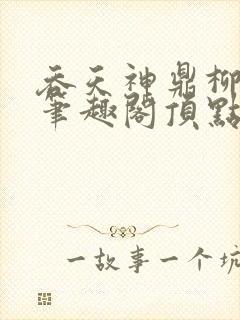 吞天神鼎柳
笔趣阁頂點
一故事一个坑